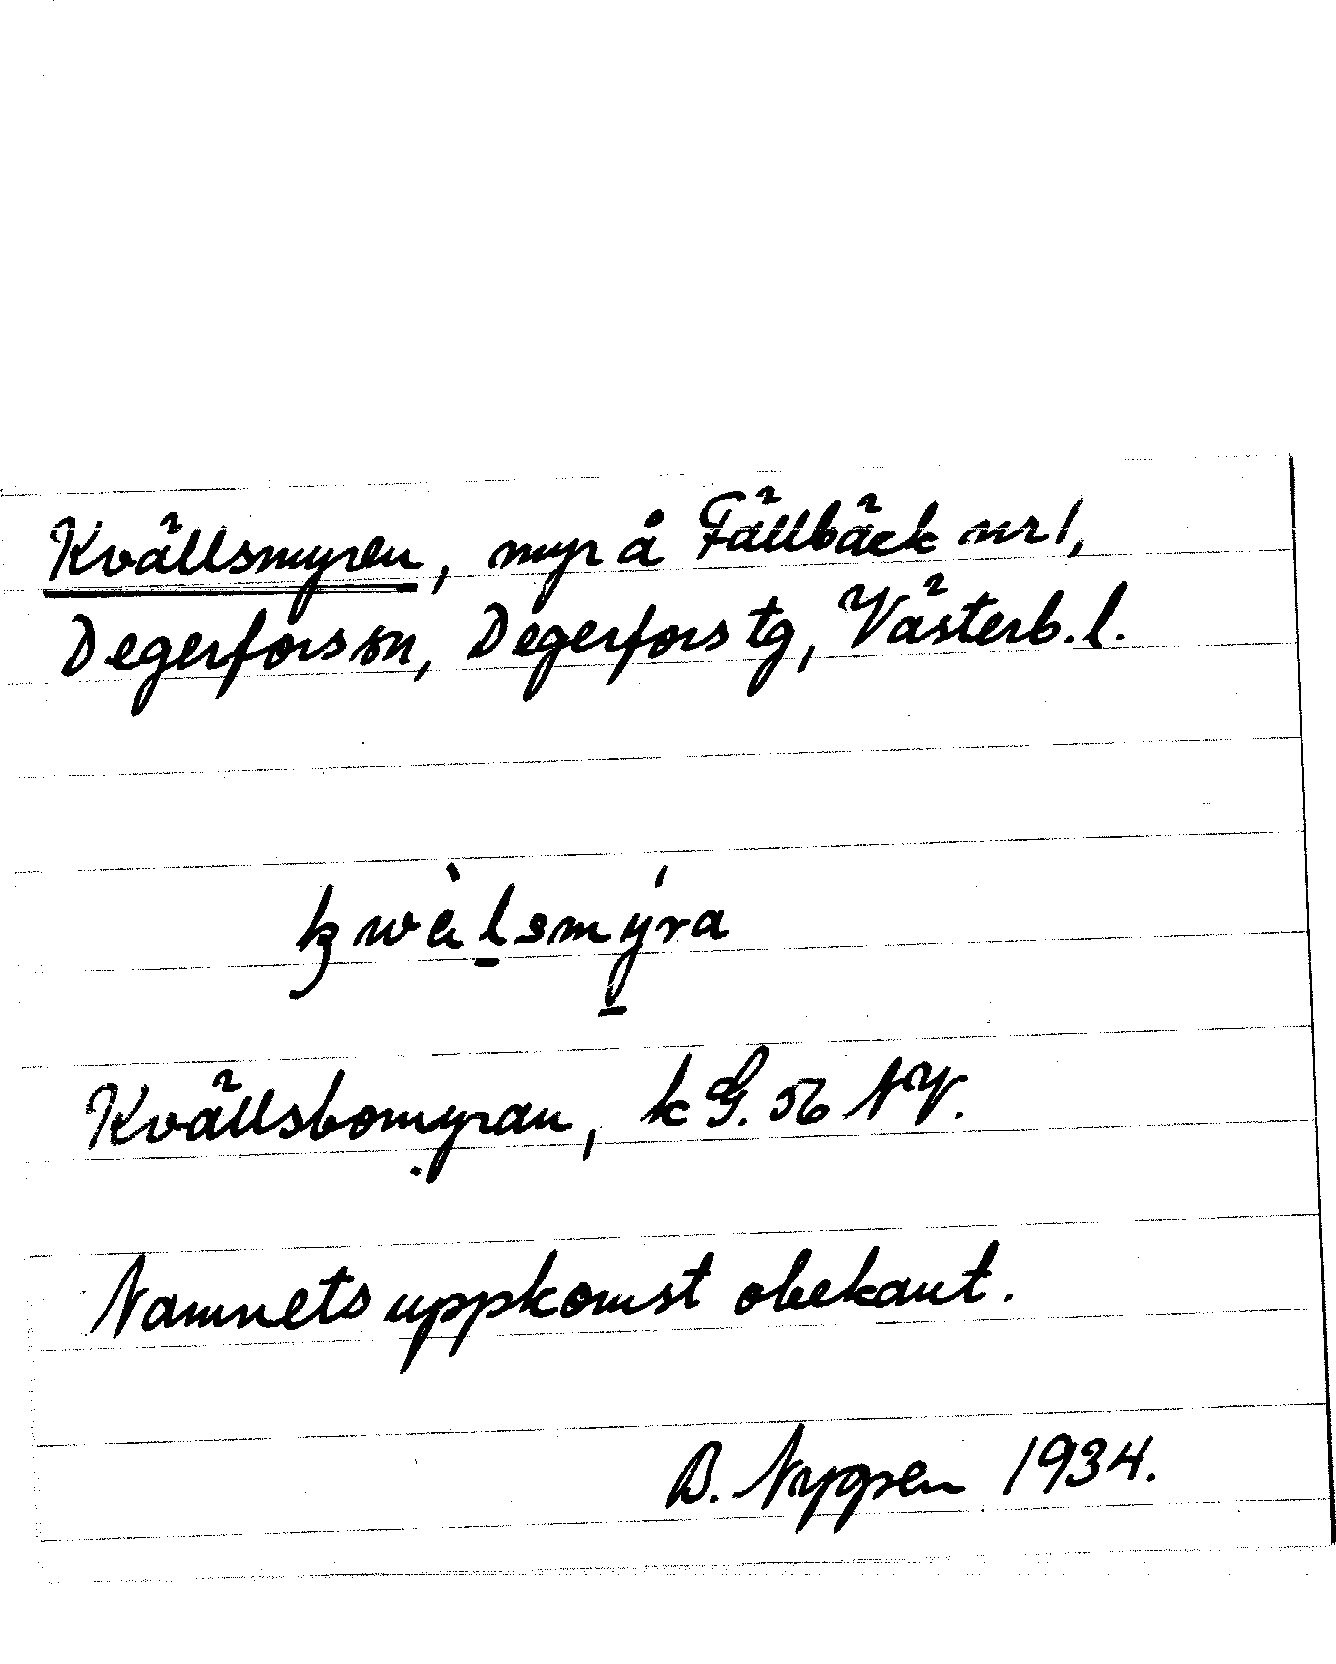 Kvällsmyren, myr å Fällbäck nr 1,
Degerfors sn, Degerfors tg, Västerb. l.
kwèlsmýra
Kvällsbomyran, k G. 56 NV.
Namnets uppkomst obekant.
B. Nygren 1934.